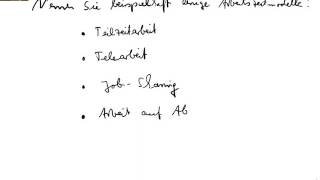 Nennen Sie beispielhaft einige Arbeitszeitmodelle:
• Teilzeitarbeit
• Telearbeit
• Job-Sharing
• Arbeit auf Ab